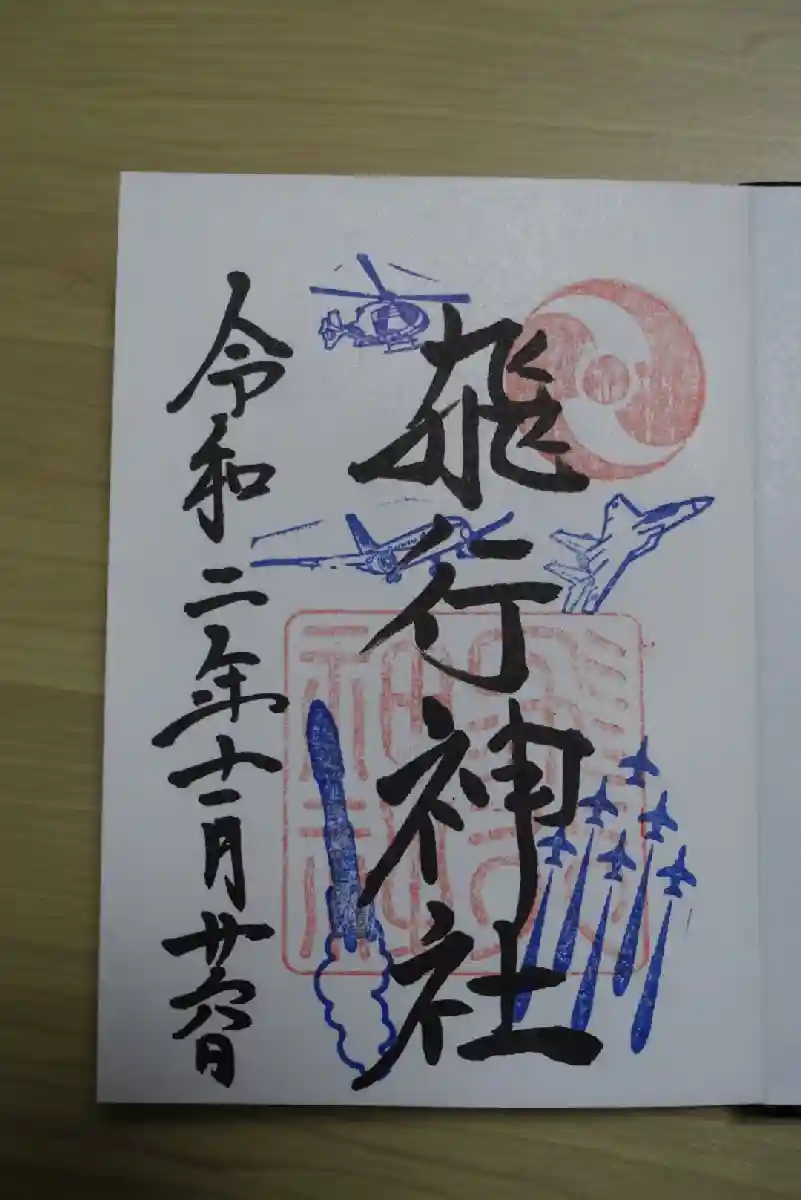 飛行神社
令和二年十一月廿六日